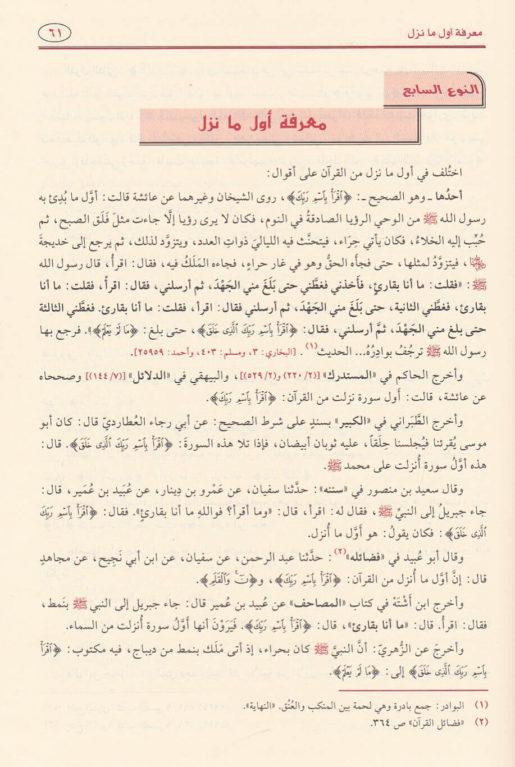 معرفة أول ما نزل
٦١
النوع السابع
معرفة أول ما نزل
اختُلف في أول ما نزل من القرآن على أقوال:
أحدُها ـ وهو الصحيح ـ: ﴿اقْرَأْ بِاسْمِ رَبِّكَ﴾، روى الشيخان وغيرهما عن عائشة قالت: أوَّل ما بُدِئ به
رسول الله ﷺ من الوحي الرؤيا الصادقةُ في النوم، فكان لا يرى رؤيا إلَّا جاءت مثلَ فَلَق الصبح، ثم
حُبِّب إليه الخلاءُ، فكان يأتي حِرَاء، فيتحنَّث فيه الليالي ذواتِ العدد، ويتزوَّد لذلك، ثم يرجع إلى خديجةَ
رضي الله عنها، فيتزوَّد لمثلها، حتى فجأه الحقُّ وهو في غار حراءٍ، فجاءه المَلَك فيه، فقال: اقرأ، قال رسول الله
ﷺ: «فقلت: ما أنا بقارئٍ، فأخذني فغطَّني حتى بَلَغَ مني الجَهْدَ، ثم أرسلني، فقال: اقرأ، فقلت: ما أنا
بقارئ، فغطَّني الثانية، حتى بَلَغَ مني الجَهْدَ، ثم أرسلني فقال: اقرأ، فقلت: ما أنا بقارئ. فغطَّني الثالثة
حتى بلغ مني الجَهْدَ، ثمَّ أرسلني، فقال: ﴿اقْرَأْ بِاسْمِ رَبِّكَ الَّذِي خَلَقَ﴾، حتى بلغ: ﴿مَا لَمْ يَعْلَمْ﴾». فرجع بها
رسول الله ﷺ ترجُفُ بوادِرُهُ... الحديث(١). [البخاري: ٣، ومسلم: ٤٠٣، وأحمد: ٢٥٩٥٩].
وأخرج الحاكم في «المستدرك» [(٢/٢٢٠) و(٢/٥٢٩)]، والبيهقي في «الدلائل» [(٧/١٤٤)] وصححاه
عن عائشة، قالت: أول سورة نزلت من القرآن: ﴿اقْرَأْ بِاسْمِ رَبِّكَ﴾.
وأخرج الطَّبَراني في «الكبير» بسندٍ على شرط الصحيح: عن أبي رجاء العطارديّ قال: كان أبو
موسى يُقرئنا فيُجلسنا حِلَقاً، عليه ثوبان أبيضان، فإذا تلا هذه السورةَ: ﴿اقْرَأْ بِاسْمِ رَبِّكَ الَّذِي خَلَقَ﴾. قال:
هذه أوَّلُ سورة أُنزلت على محمد ﷺ.
وقال سعيد بن منصور في «سننه»: حدَّثنا سفيان، عن عَمْرو بن دِينار، عن عُبَيد بن عُمَير، قال:
جاء جبريلُ إلى النبيِّ ﷺ، فقال له: اقرأ، قال: «وما أقرأ؟ فواللهِ ما أنا بقارئٍ». فقال: ﴿اقْرَأْ بِاسْمِ رَبِّكَ
الَّذِي خَلَقَ﴾: فكان يقولُ: هو أوَّل ما أُنزل.
وقال أبو عُبيد في «فضائله»(٢): حدَّثنا عبد الرحمن، عن سفيان، عن ابن أبي نَجيح، عن مجاهدٍ
قال: إنَّ أوَّل ما أُنزل من القرآن: ﴿اقْرَأْ بِاسْمِ رَبِّكَ﴾، و﴿نۤ وَالْقَلَمِ﴾.
وأخرج ابن أَشْتَهْ في كتاب «المصاحف» عن عُبيد بن عُمير قال: جاء جبريل إلى النبي ﷺ بنَمط،
فقال: اقرأ. قال: «ما أنا بقارئ»، قال: ﴿اقْرَأْ بِاسْمِ رَبِّكَ﴾. فيَرَوْن أنها أوَّلُ سورة أُنزلت من السماء.
وأخرج عن الزُّهريِّ: أنَّ النبيَّ ﷺ كان بحراء، إذ أتى مَلَك بنمط من ديباجٍ، فيه مكتوب: ﴿اقْرَأْ
بِاسْمِ رَبِّكَ الَّذِي خَلَقَ﴾ إلى: ﴿مَا لَمْ يَعْلَمْ﴾.
(١) البوادر: جمع بادرة وهي لحمة بين المنكب والعُنُق. «النهاية».
(٢) «فضائل القرآن» ص ٣٦٤.